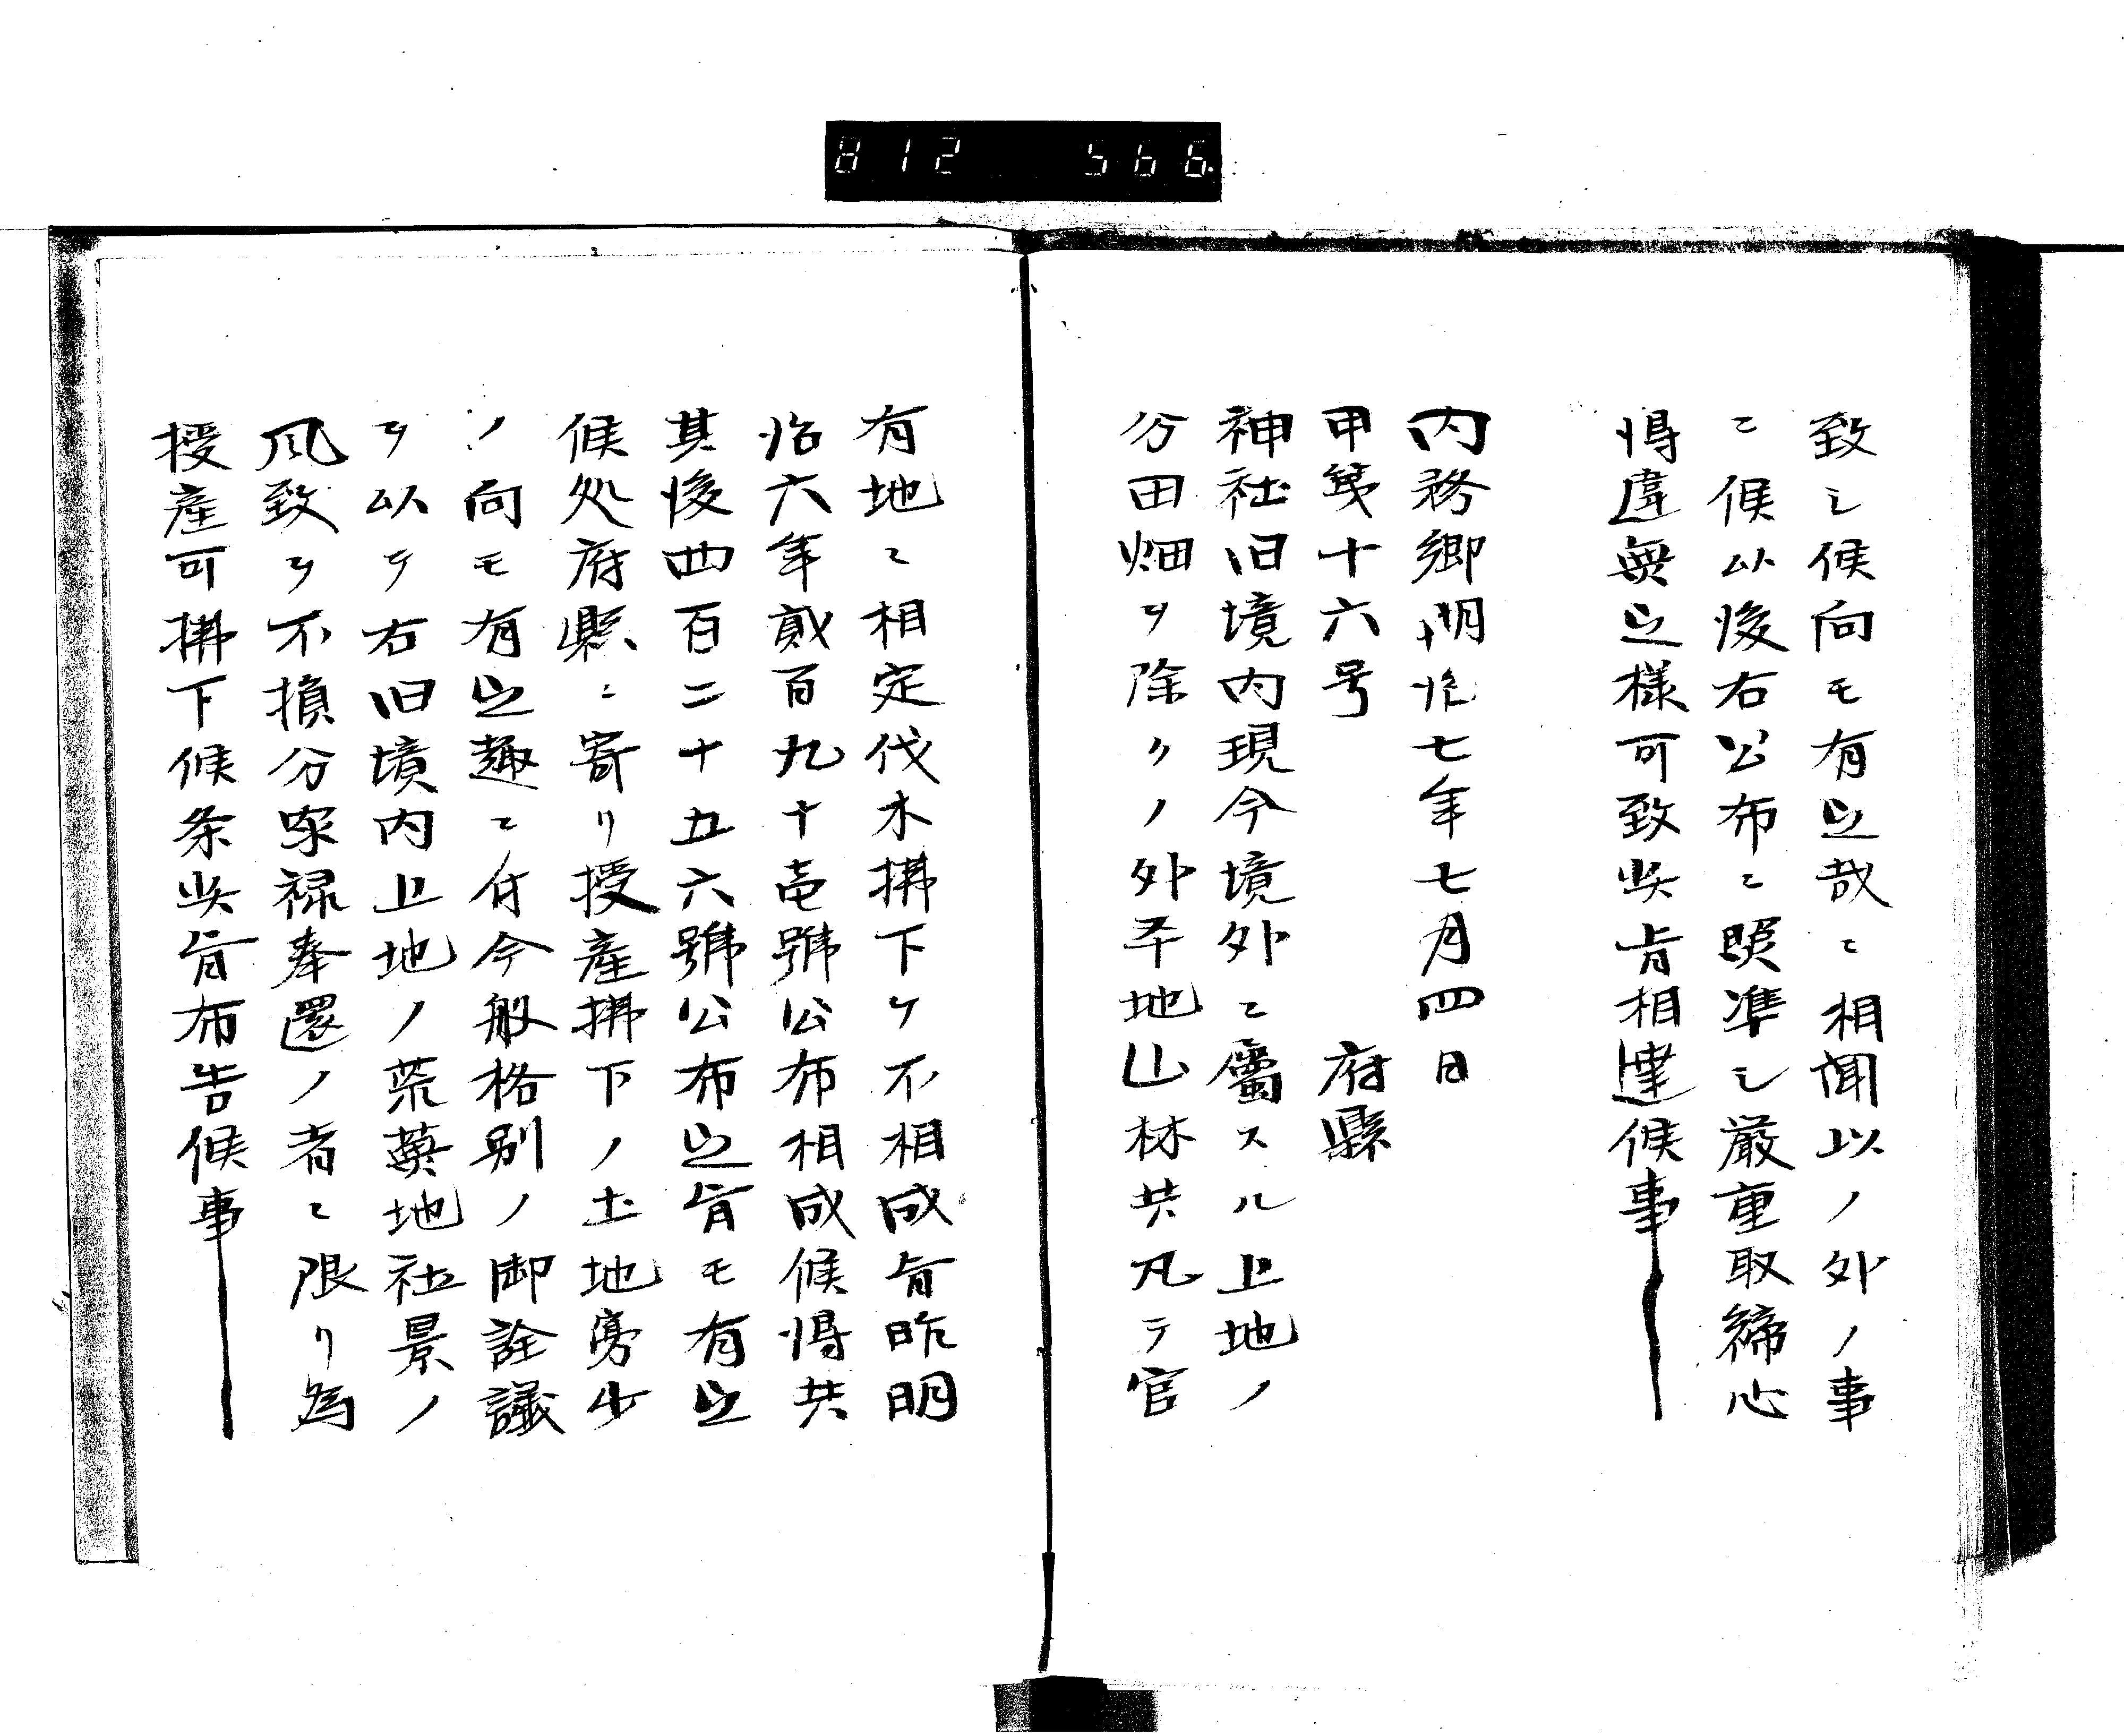 812 566
致シ候向モ有之哉ニ相聞以ノ外ノ事
ニ候以後右公布ニ照準シ厳重取締心
得違無之様可致此旨相達候事
内務卿 明治七年七月四日
甲第十六号 府縣
神社旧境内現今境外ニ屬スル上地ノ
分田畑ヲ除クノ外平地山林共凡テ官
有地ニ相定伐木拂下ケ不相成旨昨明
治六年貮百九十壱號公布相成候得共
其後四百二十五六號公布之旨モ有之
候処府縣ニ寄リ授産拂下ノ土地寡少
ノ向モ有之趣ニ付今般格別ノ御詮議
ヲ以テ右旧境内上地ノ荒蕪地社景ノ
風致ヲ不損分家禄奉還ノ者ニ限リ為
授産可拂下候条此旨布告候事